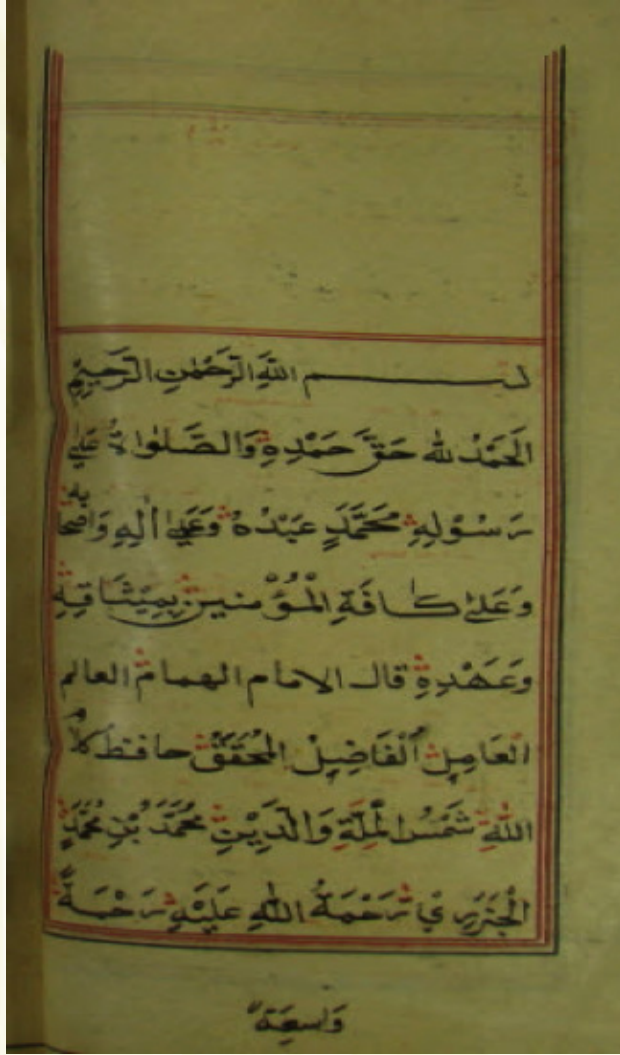 بسم الله الرَّحْمٰنِ الرَّحِيمِ
اَلْحَمْدُ لله حَقَّ حَمْدِهِ وَالصَّلٰوة عَلٰي
رَسُوْلِهِ مُحَمَّدٍ عَبْدُهُ وَعَلٰي اٰلِهِ وَاَصْحَابِهِ
وَعَلٰي كَافَةِ الْمُؤْمنين بِمِيْثَاقِهِ
وَعَهْدِهِ قال الامام الهمام العالم
العَامِل اَلْفَاضِلْ المُحَقّقْ حافظ كلام
اللهِ شَمْسُ الْمِلَّةِ وَالدِّيْنِ مُحَمَّدْ بْنِ مُحَمَّدٍ
الْجَزَرِي رَحْمَةُ اللهِ عَلَيْهِ رَحْمَةً
وَاسِعَةً